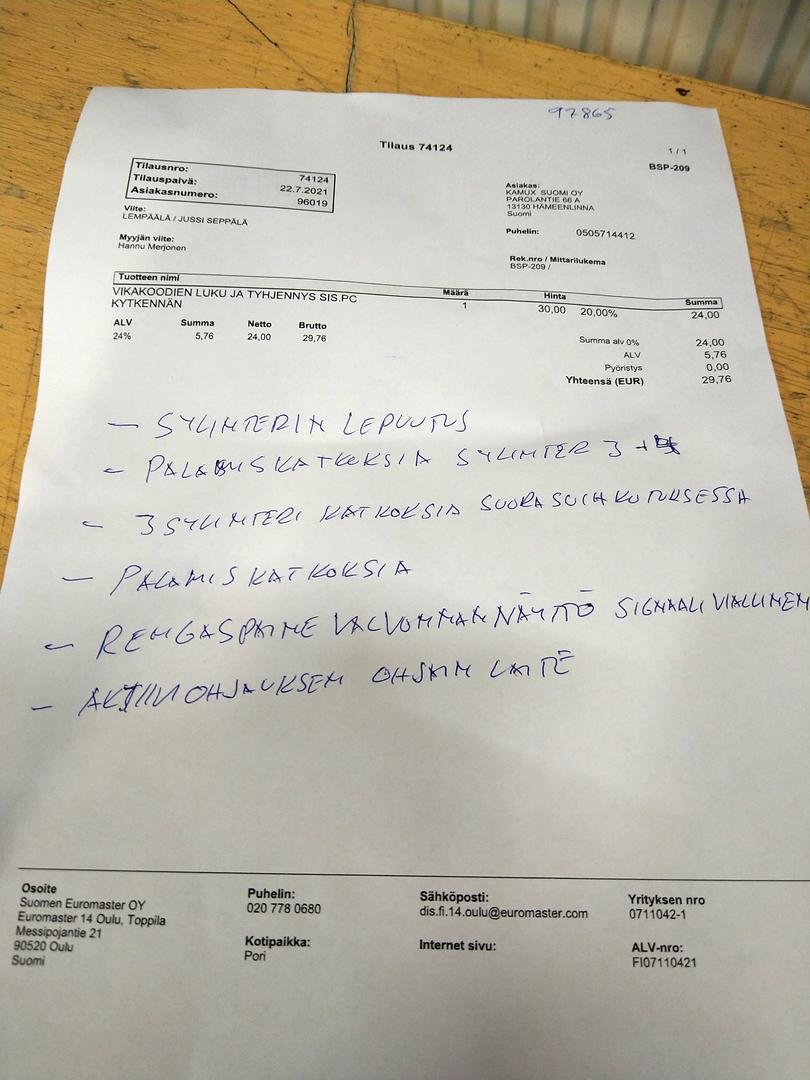 97865
Tilaus 74124
1 / 1
BSP-209
Tilausnro: 74124
Tilauspäivä: 22.7.2021
Asiakasnumero: 96019
Viite:
LEMPÄÄLÄ / JUSSI SEPPÄLÄ
Myyjän viite:
Hannu Merjonen
Asiakas:
KAMUX SUOMI OY
PAROLANTIE 66 A
13130 HÄMEENLINNA
Suomi
Puhelin: 0505714412
Rek.nro / Mittarilukema
BSP-209 /
Tuotteen nimi Määrä Hinta Summa
VIKAKOODIEN LUKU JA TYHJENNYS SIS.PC 1 30,00 20,00% 24,00
KYTKENNÄN
ALV Summa Netto Brutto
24% 5,76 24,00 29,76
Summa alv 0% 24,00
ALV 5,76
Pyöristys 0,00
Yhteensä (EUR) 29,76
- SYLINTERIN LEPUUTUS
- PALAMISKATKOKSIA SYLINTER 3
- 3 SYLINTERI KATKOKSIA SUORASUIHKUTUKSESSA
- PALAMISKATKOKSIA
- RENGASPAINE VALVONNAN NÄYTTÖ SIGNAALI VIALLINEN
- AKTIIVIOHJAUKSEN OHJAIN LAITE
Osoite
Suomen Euromaster OY
Euromaster 14 Oulu, Toppila
Messipojantie 21
90520 Oulu
Suomi
Puhelin:
020 778 0680
Kotipaikka:
Pori
Sähköposti:
dis.fi.14.oulu@euromaster.com
Internet sivu:
Yrityksen nro
0711042-1
ALV-nro:
FI07110421